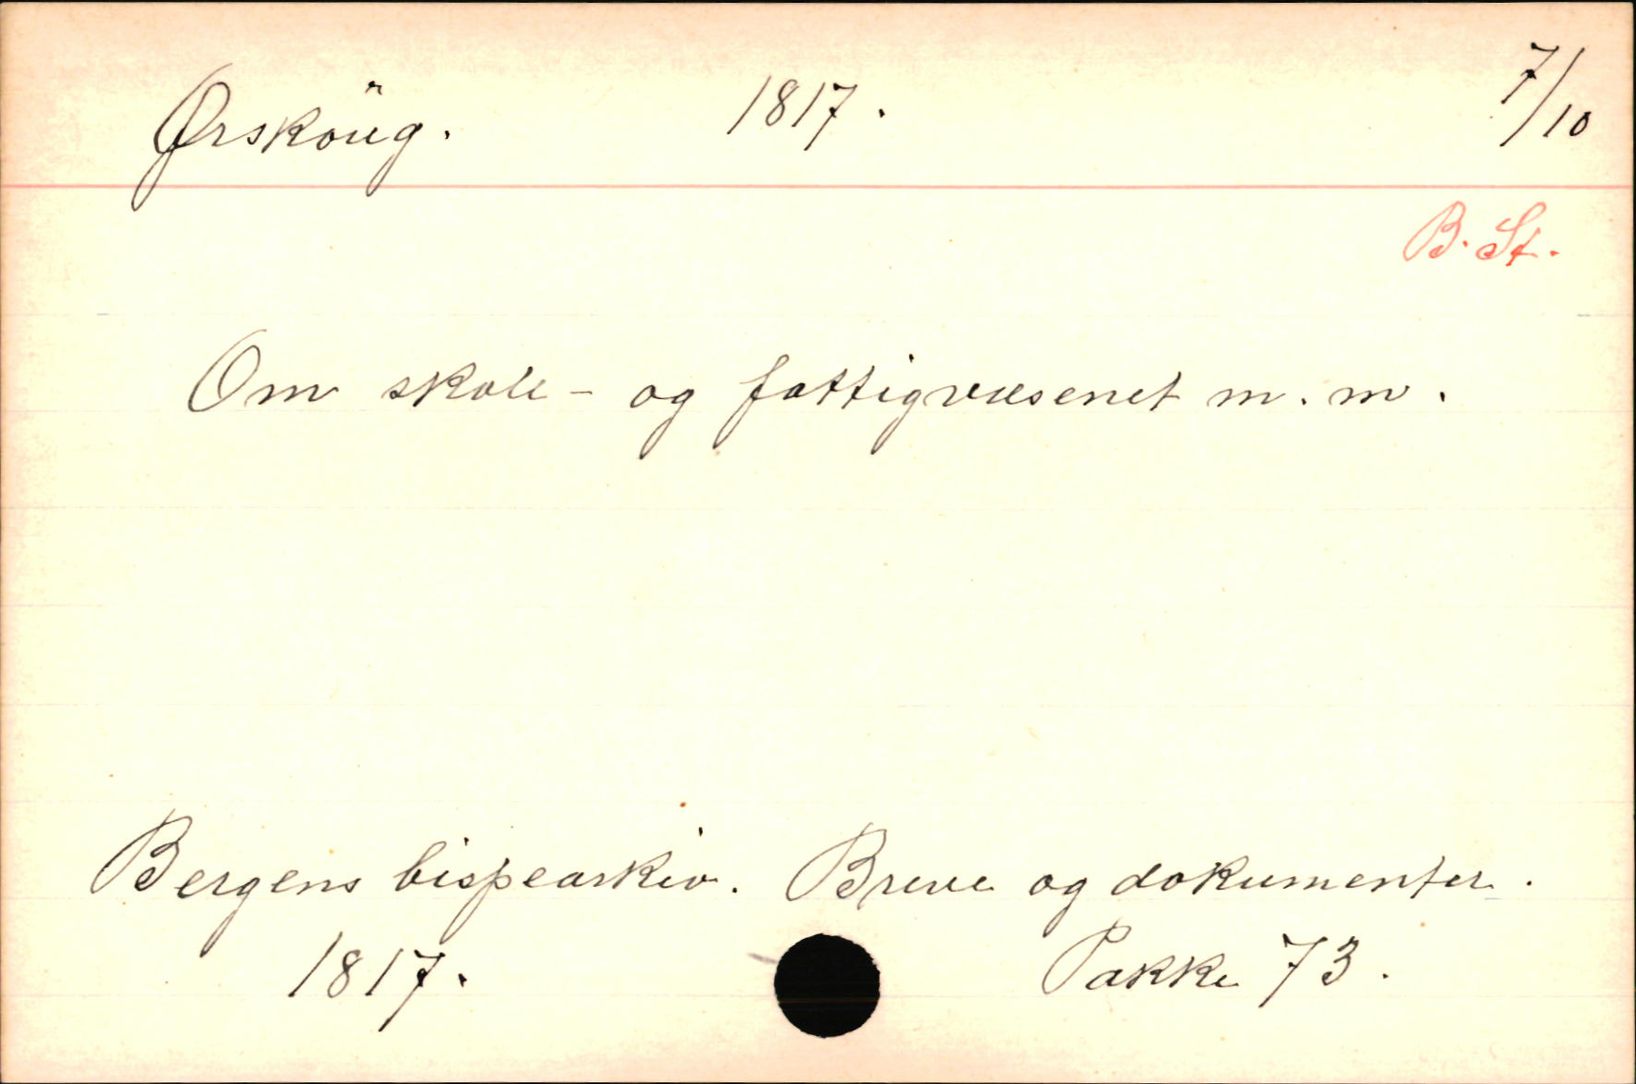 Ørsköug. 1817. 7/10
B. St.
Om skole- og fattigvæsenet m. m.
Bergens bispearkiv. Breve og dokumenter.
1817. Pakke 73.